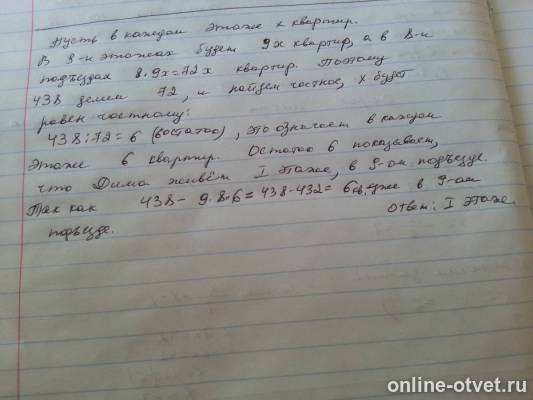 Пусть в каждом этаже x квартир.
В 9-и этажах будем 9x квартир, а в 8-и
подъездах 8·9x=72x квартир. Поэтому
438 делим 72, и найдем частное, x будет
равен частному:
438:72=6 (6остаток), это означает в каждом
этаже 6 квартир. Остаток 6 показывает,
что Дима живёт I этаже, в 9-ом подъезде.
Так как 438-9·8·6=438-432=6кв, уже в 9-ом
подъезде.
Ответ: I этаже.
online-otvet.ru